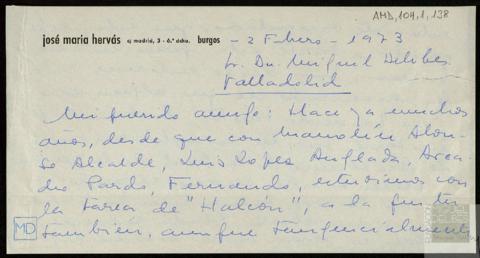 AMD, 104, 1, 138
josé maría hervás c/ madrid, 3 - 6.º dcha. burgos - 2 Febrero - 1973
Sr. Dn. Miguel Delibes
Valladolid
Mi querido amigo: Hace ya muchos
años, desde que con Manolín Alon-
so Alcalde, Luis Lopez Anglada, Arca-
dio Pardo, Fernando, estuvimos con
la tarea de "Halcón", a la que tu
también, aunque tangencialmente
MD